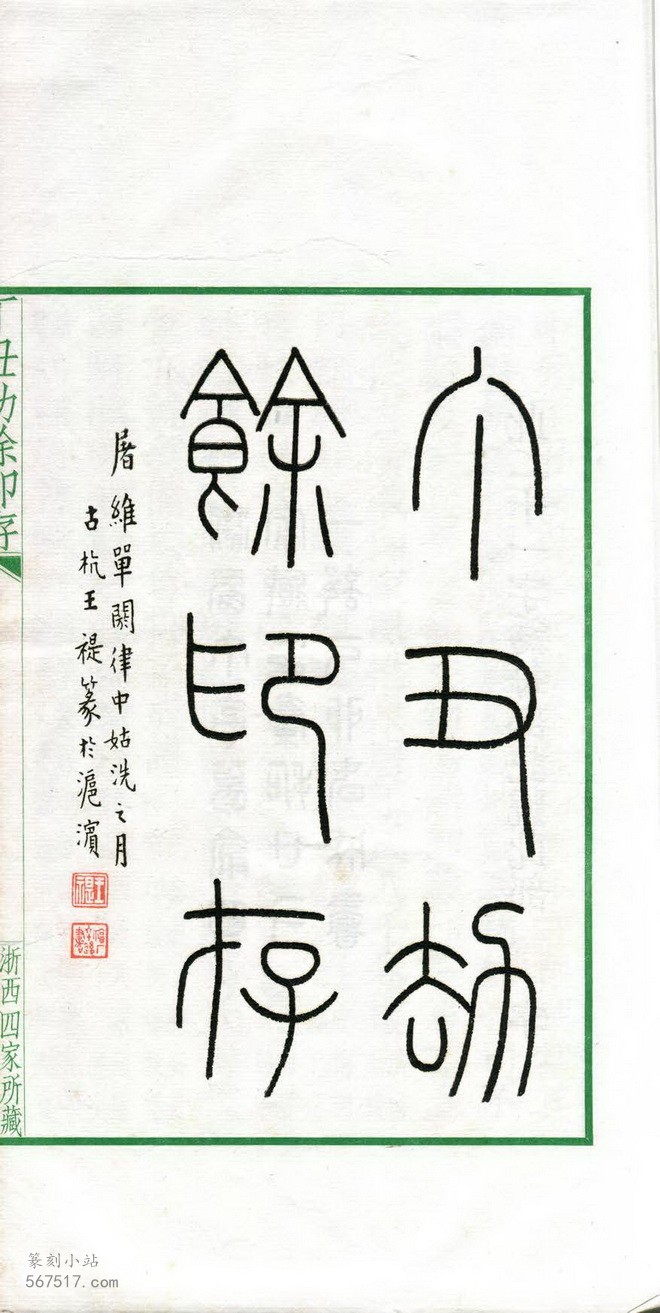 丁丑劫
餘印存
屠維單閼律中姑洗之月
古杭王禔篆於滬濱
丁丑劫餘印存
浙西四家所藏
篆刻小站
567517.com